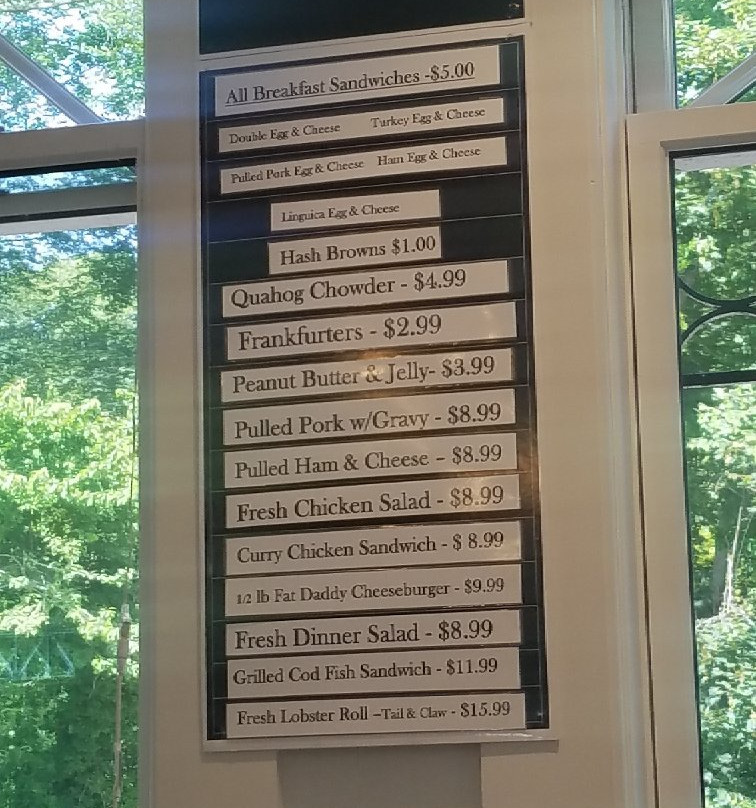 All Breakfast Sandwiches -$5.00
Double Egg & Cheese Turkey Egg & Cheese
Pulled Pork Egg & Cheese Ham Egg & Cheese
Linguica Egg & Cheese
Hash Browns $1.00
Quahog Chowder - $4.99
Frankfurters - $2.99
Peanut Butter & Jelly- $3.99
Pulled Pork w/Gravy - $8.99
Pulled Ham & Cheese - $8.99
Fresh Chicken Salad - $8.99
Curry Chicken Sandwich - $ 8.99
1/2 lb Fat Daddy Cheeseburger - $9.99
Fresh Dinner Salad - $8.99
Grilled Cod Fish Sandwich - $11.99
Fresh Lobster Roll –Tail & Claw - $15.99